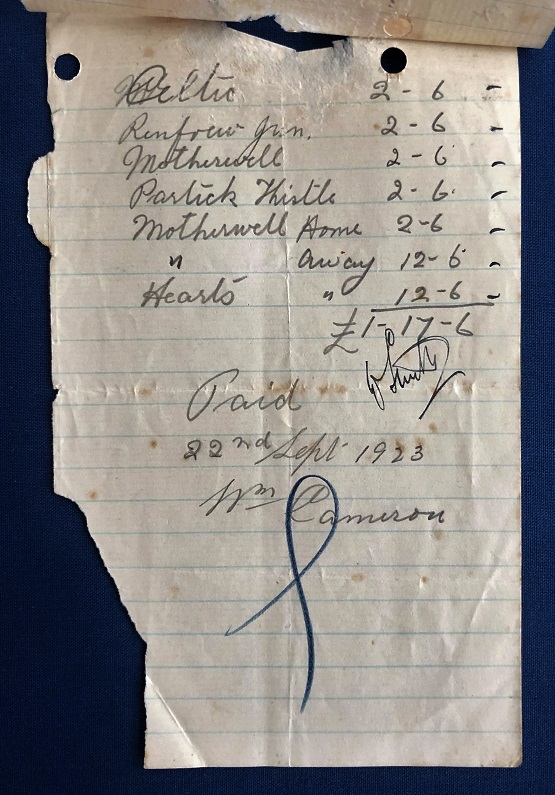 Celtic 2-6 -
Renfrew Jun. 2-6 -
Motherwell 2-6 -
Partick Thistle 2-6. -
Motherwell Home 2-6
" away 12-6 -
Hearts " 12-6 -
£1-17-6
Paid
22nd Sept 1923
Wm Cameron